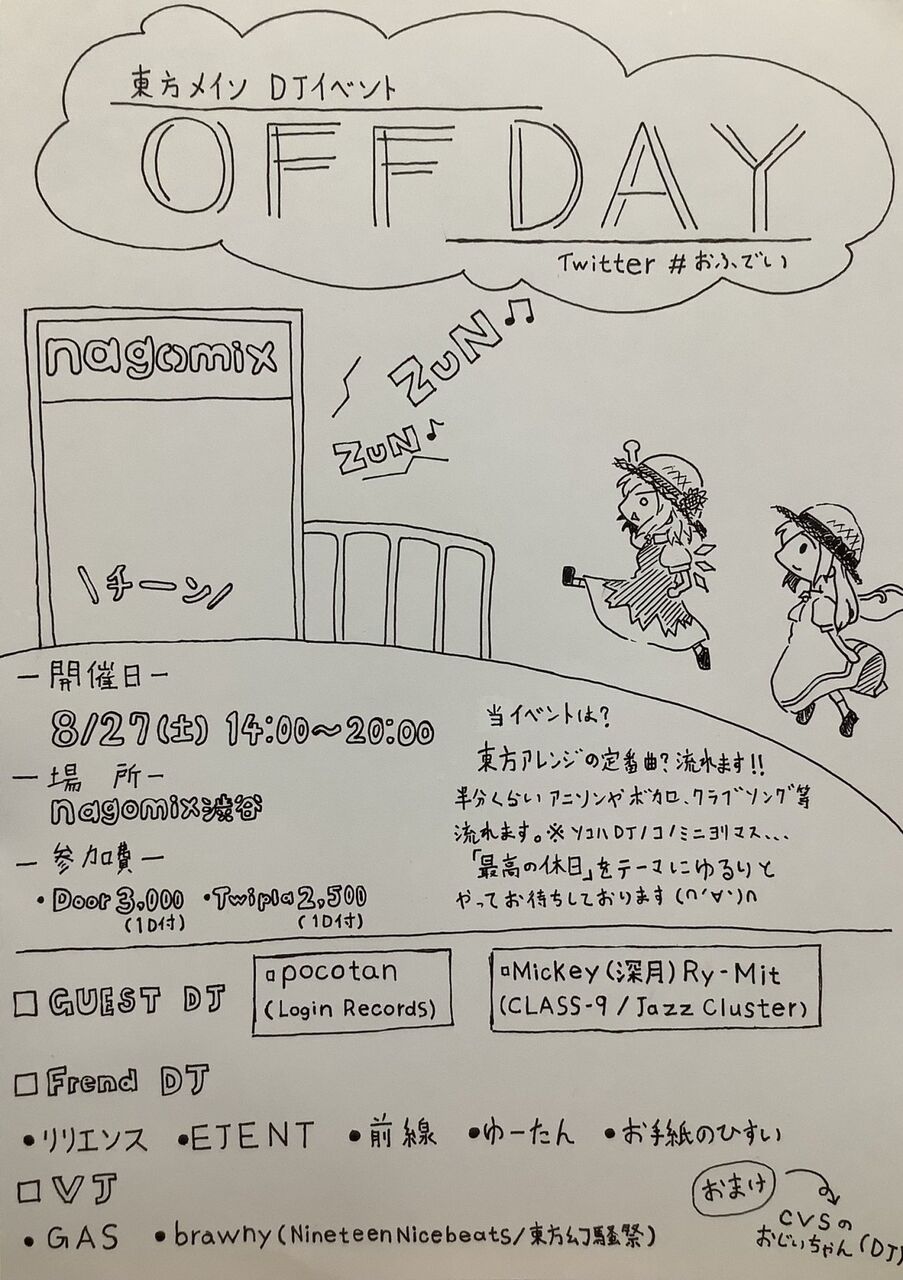 東方メイン DJイベント
OFF DAY
Twitter #おふでい
nagomix
ZUN♫
ZUN♪
\チーン/
ー開催日ー
8/27(土) 14:00〜20:00
ー場 所ー
nagomix渋谷
ー参加費ー
・Door3,000 ・Twipla2,500
(1D付) (1D付)
当イベントは?
東方アレンジの定番曲?流れます!!
半分くらいアニソンやボカロ、クラブソング等
流れます。※ソコハDTノコノミニヨリマス...
「最高の休日」をテーマにゆるりと
やってお待ちしております(∩'∀')∩
□GUEST DJ
▫pocotan
(Login Records)
▫Mickey(深月)Ry-Mit
(CLASS-9/Jazz Cluster)
□Frend DJ
•リリエンス •EJENT •前線 •ゆーたん •お手紙のひすい
□VJ
•GAS •brawny(NineteenNicebeats/東方幻騒祭)
おまけ
CVSの
おじいちゃん(DJ)